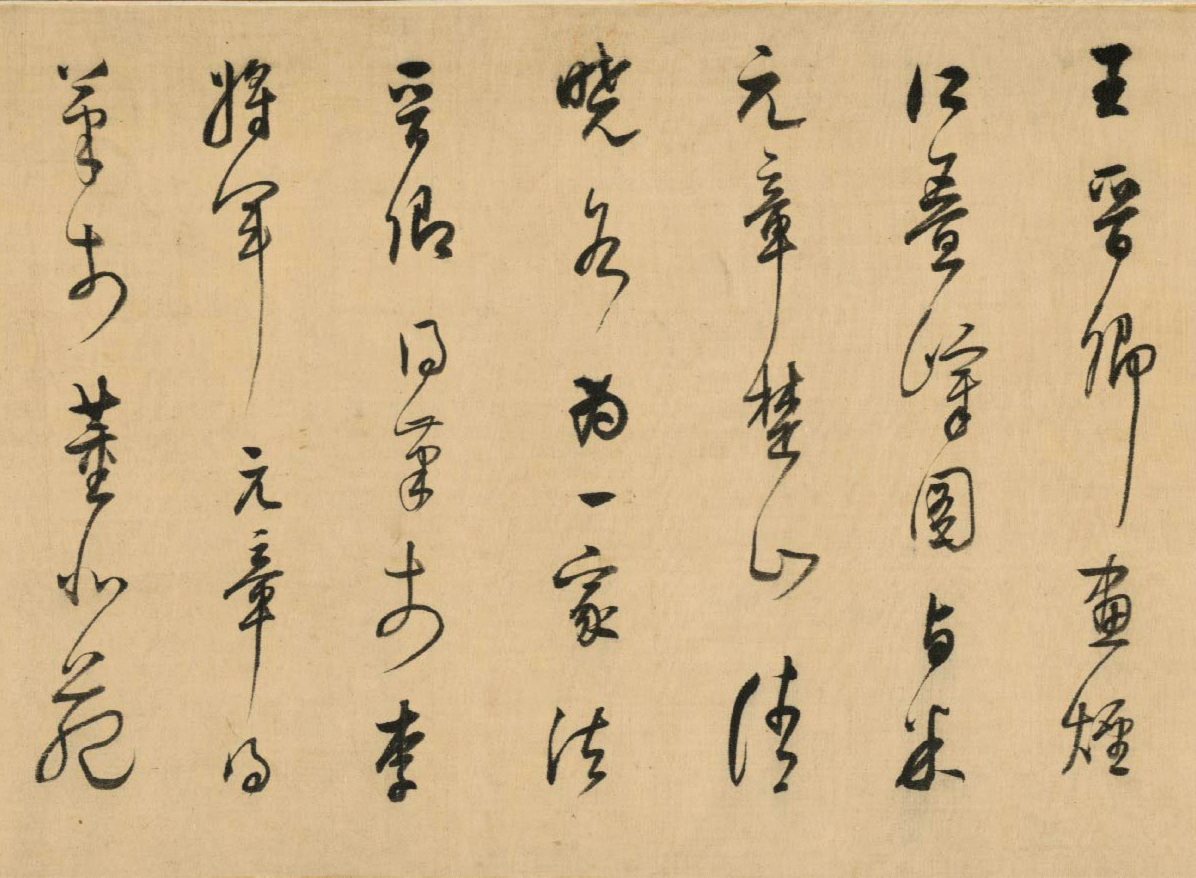 王晉卿畫煙
江疊嶂圖与米
元章楚山清
曉各為一家法
晉卿得筆於李
將軍元章得
筆於董北苑